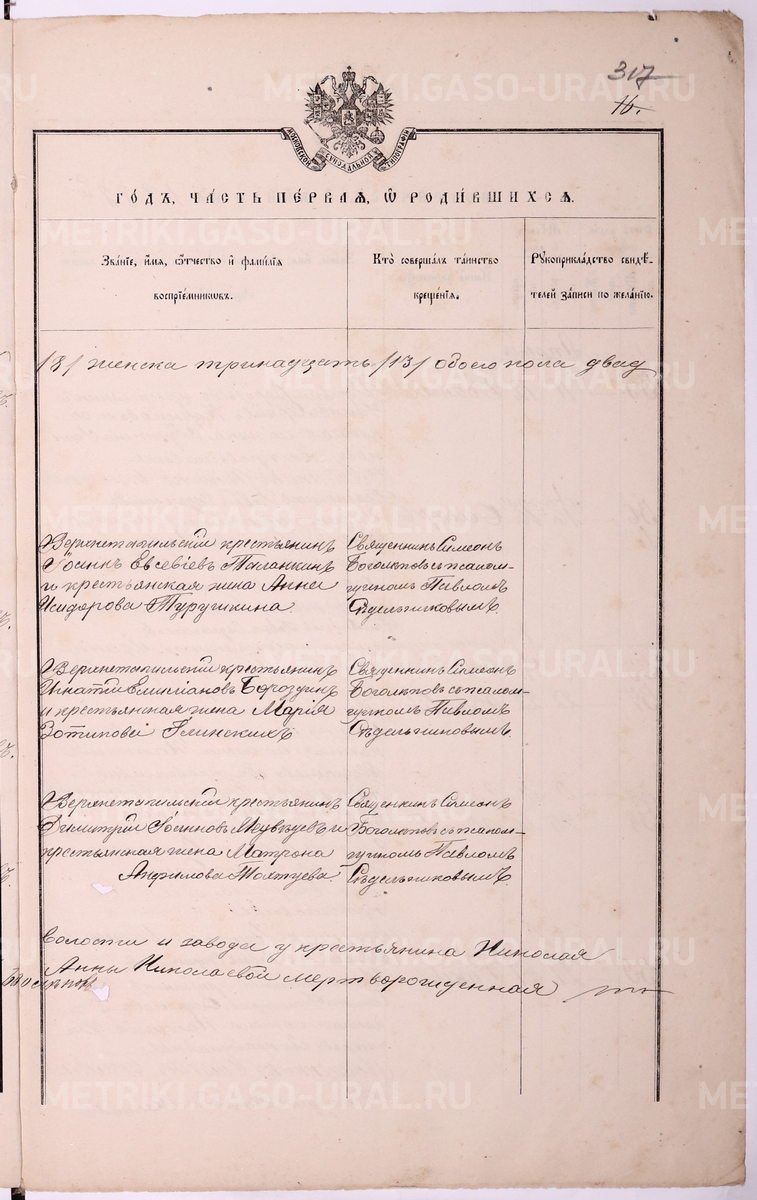 317
16.
МОСКОВСКОЙ СѴНОДАЛЬНОЙ ТИПОГРАФІИ
ГО́ДЪ, ЧА́СТЬ ПЕ́РВАЯ, Ѿ РОДИ́ВШИХСЯ.
Зва́нїе, и҆́мя, ѻ҆́тчество и҆ фами́лїя
воспрїе́мникѡвъ.
Кто̀ соверша́лъ та́инство
креще́нїя.
Рꙋкоприкла́дство свидѣ́-
телей за́писи по жела́нїю.
/8/ женска тринадцать /13/ обоего пола двад
Верхнетагильскій крестьянинъ
Іосифъ Евсевіевъ Таланкинъ
и крестьянская жена Анна
Исидорова Турушкина
Священникъ Симеонъ
Боголѣповъ съ псалом-
щикомъ Павломъ
Сѣдельниковымъ.
Верхнетагильскій крестьянинъ
Игнатій Емиліановъ Бороздинъ
и крестьянская жена Марія
Зотикова
Священникъ Симеонъ
Боголѣповъ съ псалом-
щикомъ Павломъ
Сѣдельниковымъ.
Верхнетагильскій крестьянинъ
Димитрій Іосифовъ Медвѣдевъ и
крестьянская жена Матрона
Анфилова
Священникъ Симеонъ
Боголѣповъ съ псалом-
щикомъ Павломъ
Сѣдельниковымъ.
волости и завода у крестьянина Николая
Анны Николаевой мертворожденная
METRIKI.GASO-URAL.RU